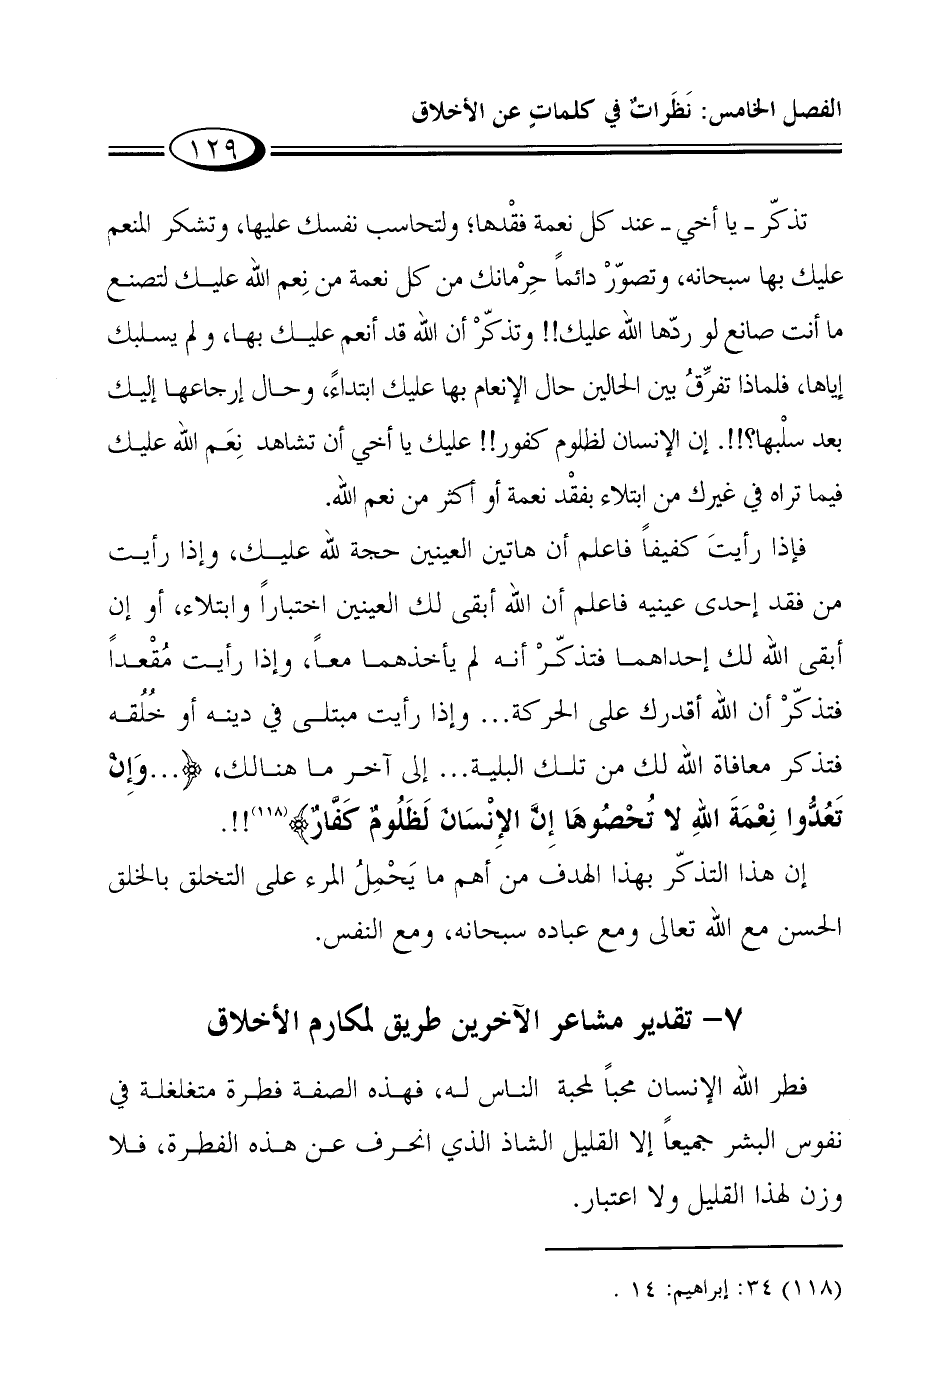 الفصل الخامس: نَظَراتٌ في كلماتٍ عن الأخلاق
١٢٩
تذكّر ـ يا أخي ـ عند كل نعمة فقْدها؛ ولتحاسب نفسك عليها، وتشكر المنعم
عليك بها سبحانه، وتصوّرْ دائماً حِرْمانك من كل نعمة من نِعم الله عليك لتصنع
ما أنت صانع لو ردّها الله عليك!! وتذكّرْ أن الله قد أنعم عليك بها، ولم يسلبك
إياها، فلماذا تفرِّقُ بين الحالين حال الإنعام بها عليك ابتداءً، وحال إرجاعها إليك
بعد سلْبها؟!!. إن الإنسان لظلوم كفور!! عليك يا أخي أن تشاهد نِعَم الله عليك
فيما تراه في غيرك من ابتلاء بفقْد نعمة أو أكثر من نعم الله.
فإذا رأيتَ كفيفاً فاعلم أن هاتين العينين حجة لله عليك، وإذا رأيت
من فقد إحدى عينيه فاعلم أن الله أبقى لك العينين اختباراً وابتلاء، أو إن
أبقى الله لك إحداهما فتذكّرْ أنه لم يأخذهما معاً، وإذا رأيت مُقْعداً
فتذكّرْ أن الله أقدرك على الحركة... وإذا رأيت مبتلى في دينه أو خُلُقه
فتذكر معافاة الله لك من تلك البلية... إلى آخر ما هنالك، ﴿...وَإِنْ
تَعُدُّوا نِعْمَةَ اللهِ لا تُحْصُوهَا إِنَّ الإِنْسَانَ لَظَلُومٌ كَفَّارٌ﴾(١١٨)!!.
إن هذا التذكّر بهذا الهدف من أهم ما يَحْمِلُ المرء على التخلق بالخلق
الحسن مع الله تعالى ومع عباده سبحانه، ومع النفس.
٧– تقدير مشاعر الآخرين طريق لمكارم الأخلاق
فطر الله الإنسان محباً لمحبة الناس له، فهذه الصفة فطرة متغلغلة في
نفوس البشر جميعاً إلا القليل الشاذ الذي انحرف عن هذه الفطرة، فلا
وزن لهذا القليل ولا اعتبار.
(١١٨) ٣٤: إبراهيم: ١٤ .